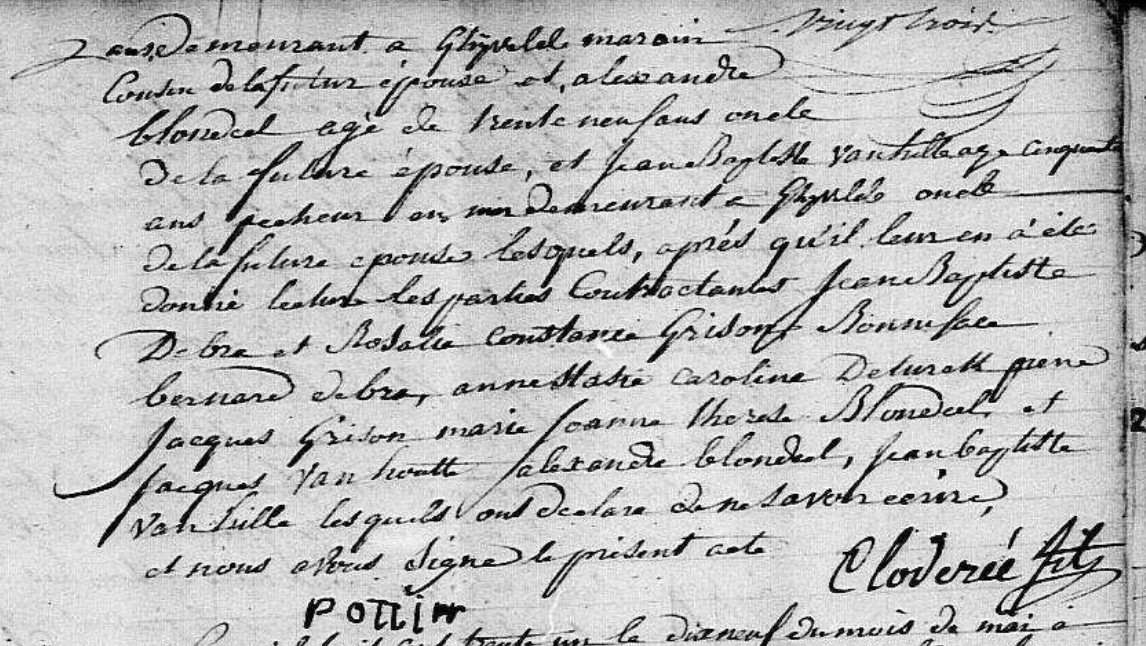 vingt trois
ans, demeurant a Ghyvelde marain
Cousin de la futur épouse et, alexandre
blondeel agé de trente neuf ans oncle
de la future épouse, et Jean Baptiste Vanhille age cinquante
ans pecheur en mer demeurant a Ghyvelde oncle
de la future epouse lesquels, aprés qu'il leur en à été
donné lecture les parties Contractantes Jean Baptiste
Debra et Rosalie Constance Grison, Bonniface
bernard debra, annestasie caroline Deturck pierre
Jacques Grison marie Joanne therese Blondeel et
Jacques Vanhoutte alexandre blondeel, jean baptiste
Vanhille lesquels ont declare de ne savoir ecrire,
et nous avons signe le présent acte
Cloderée fils
POTTIER
trente un le dixneuf du mois de mai à